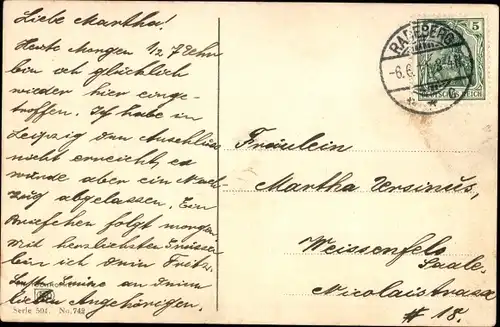 Liebe Martha!
Heute Morgen 1/2 7 Uhr
bin ich glücklich
wieder hier einge-
troffen. Ich habe in
Leipzig den Anschluss
nicht erreicht, es
wurde aber ein Nach-
zug abgelassen. Ein
Briefchen folgt morgen
Mit herzlichsten Grüssen
bin ich dein Fritz.
Beste Grüsse an Deine
lieben Angehörigen.
Serie 504. No. 742
RADEBERG
-6.6. 8-9V.
5
DEUTSCHES REICH
Fräulein
Martha Versinus,
Weissenfels
Saale.
Nicolaistrasse
# 18.